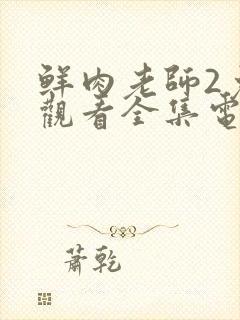 鮮肉老師2
觀看全集電
蕭乾